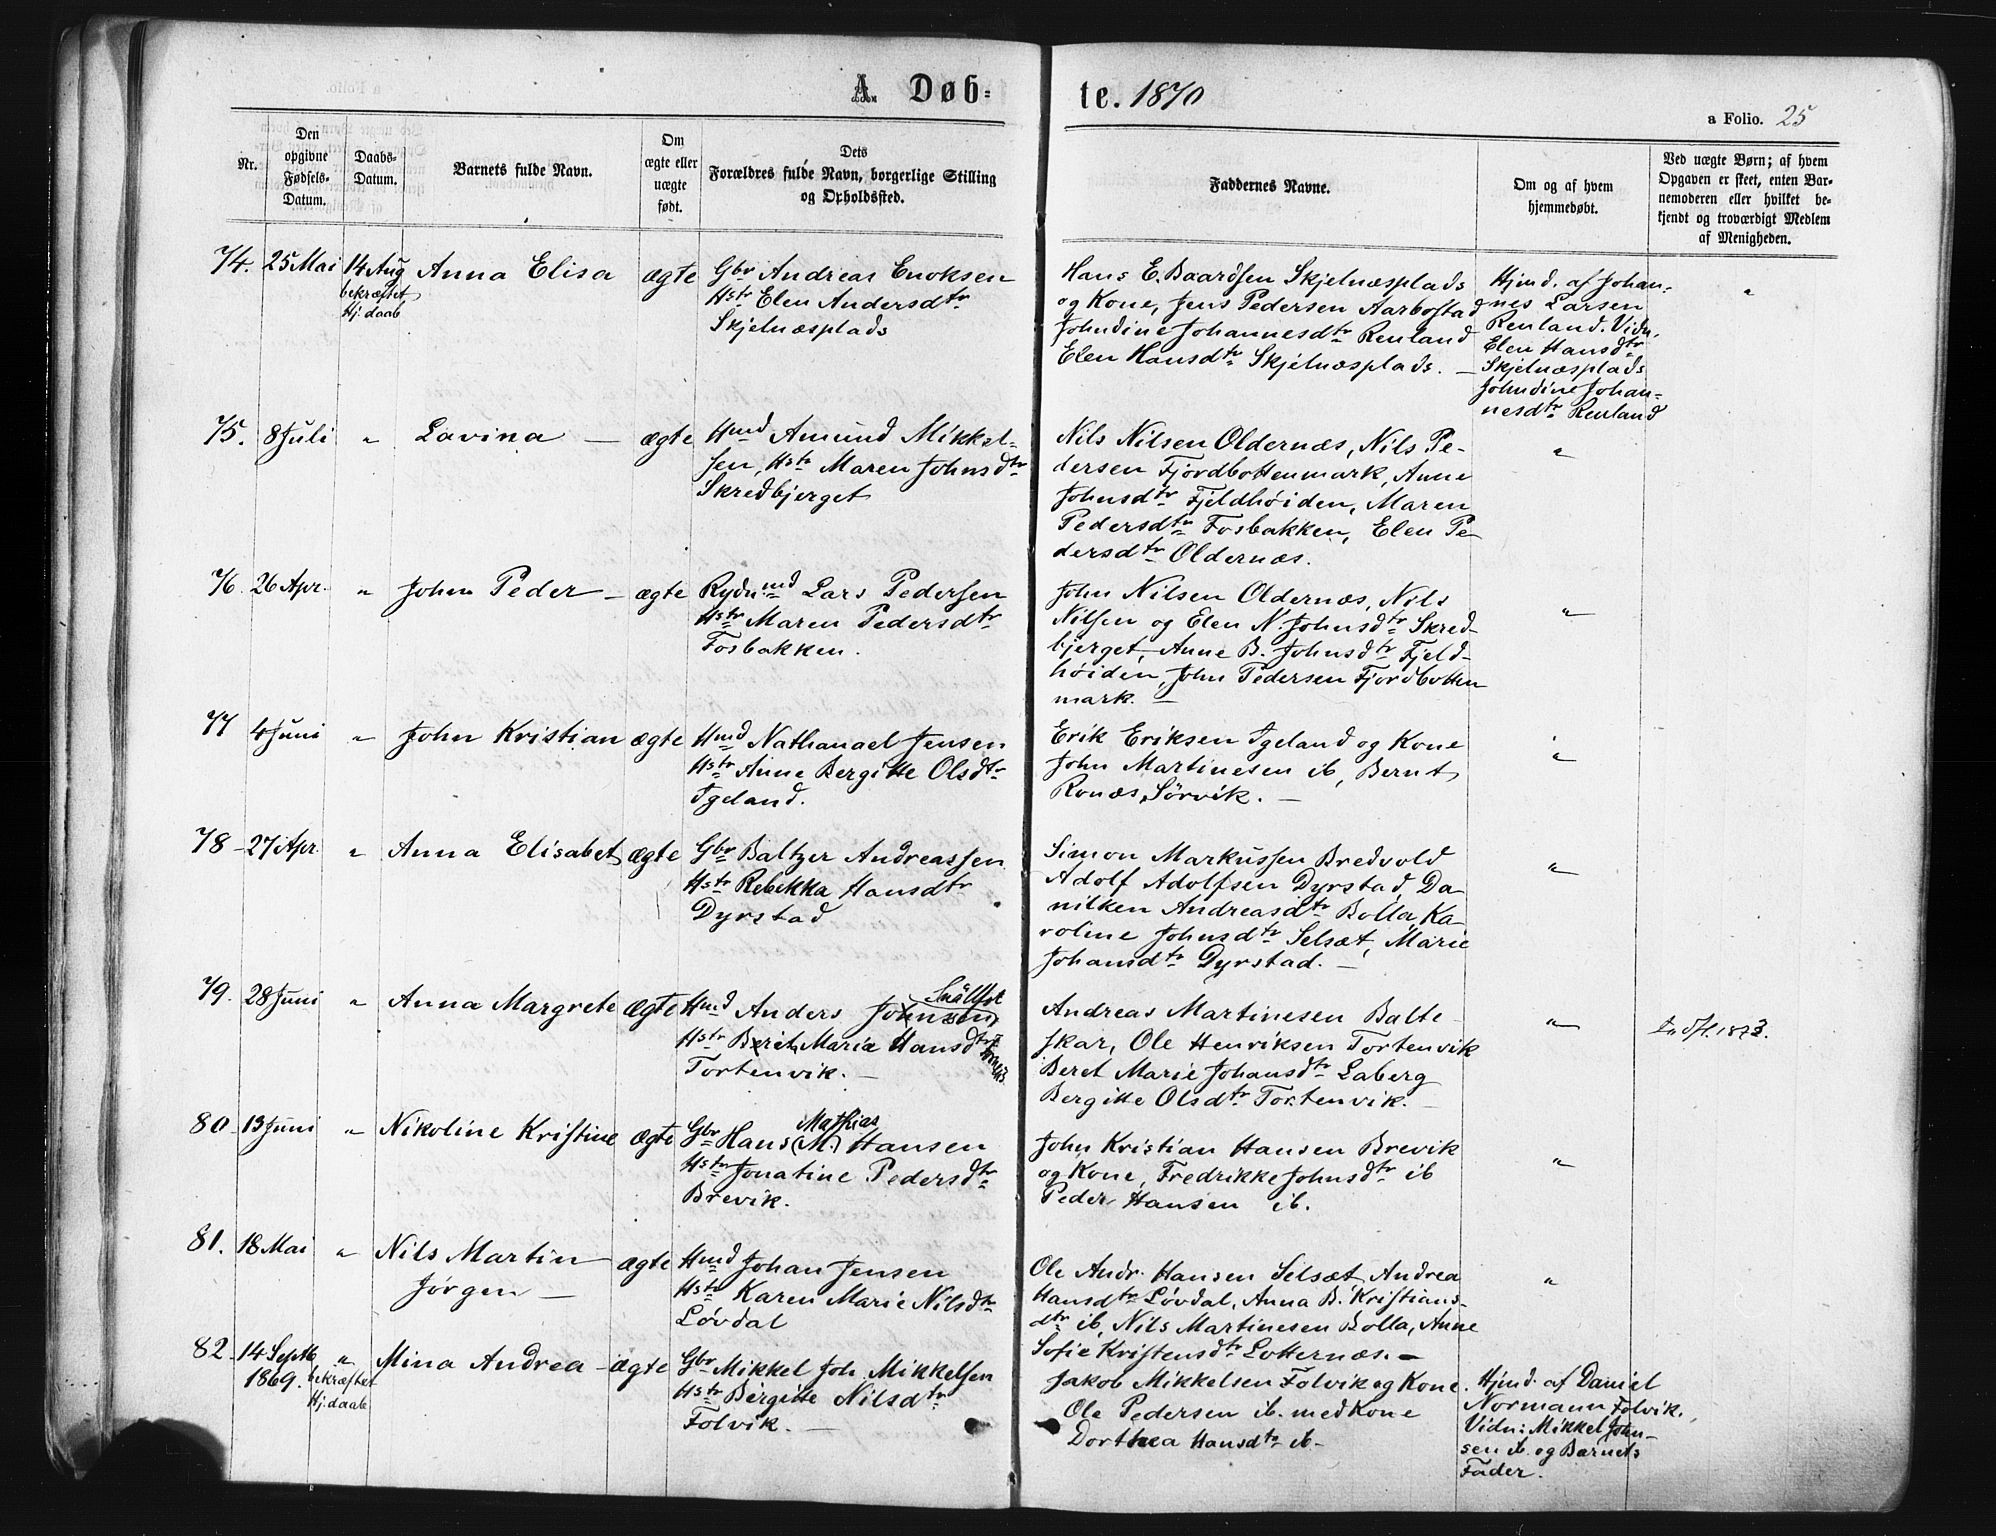 A. Døb-
te. 1870
a Folio. 25
Nr.
Den
opgivne
Fødsels-
Datum.
Daabs-
Datum.
Barnets fulde Navn.
Om
ægte eller
uægte
født.
Dets
Forældres fulde Navn, borgerlige Stilling
og Opholdssted.
Faddernes Navne.
Om og af hvem
hjemmedøbt.
Ved uægte Børn; af hvem
Opgaven er skeet, enten Bar-
nemoderen eller hvilket be-
kjendt og troværdigt Medlem
af Menigheden.
74. 25 Mai 14 Aug Anna Elisa ægte
bekræftet
Hj: daab
Gbr Andreas Enoksen
Hstr Elen Andersdtr
Skjelnæsplads
Hans E. Baardsen Skjelnæsplads
og Kone, Jens Pedersen Aarbostad
Johndine Johannesdtr Renland
Elen Hansdtr Skjelnæsplads. —
Hjmd. af Johan-
nes Larsen
Renland. Vidn.
Elen Hansdtr
Skjelnæsplads
Johndine Johan-
nesdtr Renland
"
75. 8 Juli " Lavina — ægte
Hmd Amund Mikkel-
sen, Hstr Maren Johnsdtr
Skredbjerget
Nils Nilsen Oldernæs, Nils Pe-
dersen Fjordbottenmark, Anne
Johnsdtr Fjeldhøiden, Maren
Pedersdtr Fosbakken, Elen Pe-
dersdtr Oldernæs.
"
76. 26 Apr. " John Peder — ægte
Rydnmd Lars Pedersen
Hstr Maren Pedersdtr
Fosbakken.
John Nilsen Oldernæs, Nils
Nilsen og Elen N. Johnsdtr Skred-
bjerget, Anne B. Johnsdtr Fjeld-
høiden, John Pedersen Fjordbotten
mark. —
"
77 4 Juni " John Kristian ægte
Hmd Nathanael Jensen
Hstr Anne Bergitte Olsdtr
Igeland.
Erik Eriksen Igeland og Kone
John Martinesen ib, Bernt
Ronæs, Sörvik. —
"
78 - 27 Apr. " Anna Elisabet ægte
Gbr Baltzer Andreassen
Hstr Rebekka Hansdtr
Dyrstad
Simon Markussen Bredvold
Adolf Adolfsen Dyrstad, Da-
nilken Andreasdtr Bolla, Ka-
roline Johnsdtr Selsæt, Marie
Johansdtr Dyrstad. —
"
79. 28 Juni " Anna Margrete ægte
Hmd Anders Johnsen
Hstr Berit Maria Hansdtr
Tortenvik. —
Andreas Martinesen Balte-
skar, Ole Henriksen Tortenvik
Beret Marie Johansdtr Laberg
Bergitte Olsdtr Tortenvik. —
"
1873.
80. 13 Juni " Nikoline Kristine ægte
Mathias
Gbr Hans (M.) Hansen
Hstr Jonatine Pedersdtr
Brevik.
John Kristian Hansen Brevik
og Kone, Fredrikke Johnsdtr ib
Peder Hansen ib.
"
81. 18 Mai " Nils Martin
Jörgen — ægte
Hmd Johan Jensen
Hstr Karen Marie Nilsdtr
Lövdal
Ole Andr. Hansen Selsæt, Andrea
Hansdtr Lövdal, Anna B. Kristians-
dtr ib, Nils Martinesen Bolla, Anne
Sofie Kristensdtr Lotternæs. —
"
82. 14 Septb " Mina Andrea — ægte
1869. bekræftet
Hj: daab
Gbr Mikkel Joh. Mikkelsen
Hstr Bergitte Nilsdtr
Folvik. —
Jakob Mikkelsen Folvik og Kone.
Ole Pedersen ib. med Kone
Dorthea Hansdtr ib —
Hjmd. af Daniel
Normann Folvik.
Vidn: Mikkel John-
sen ib. og Barnets
Fader.